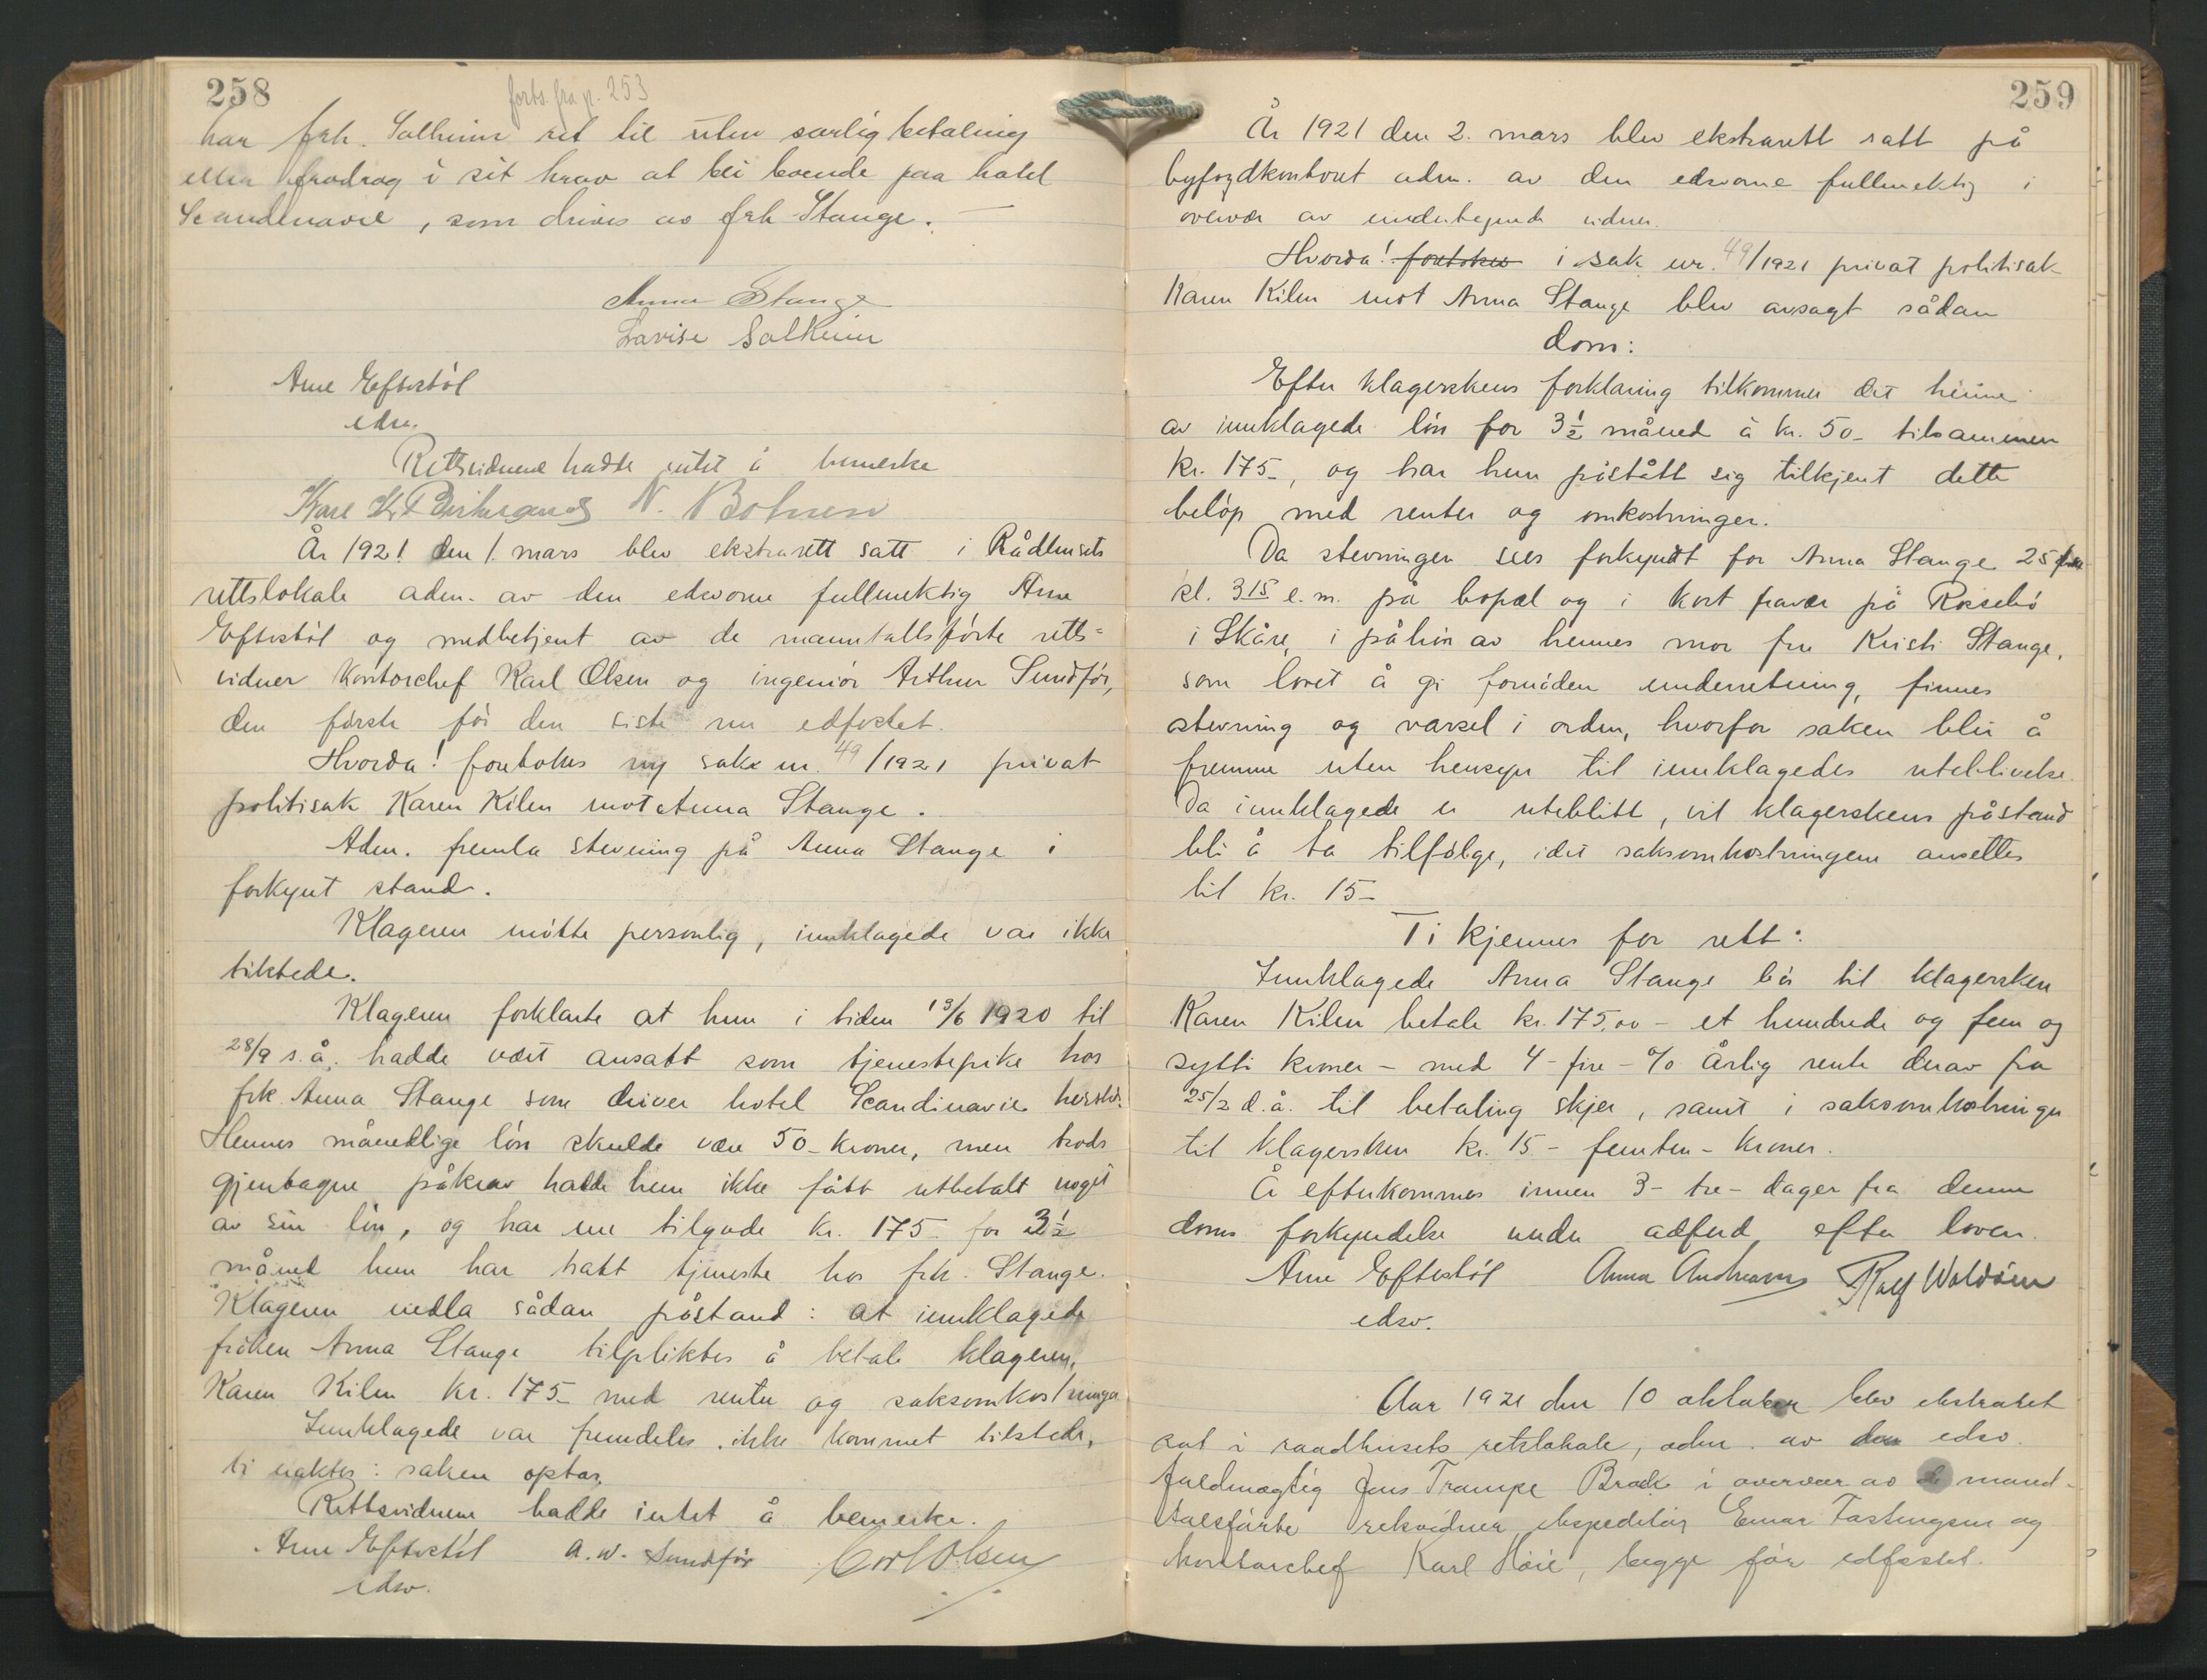 258
forts. fra p. 253
har frk. Solheim ret til uten særlig betaling
eller fradrag i sit krav at bli boende paa hotel
Scandinavie, som drives av frk Stange. —
Anna Stange
Lovise Solheim
Arne Eftestøl
edsv.
Rettsvidnene hadde intet å bemerke
N. Bolmen
År 1921 den 1. mars blev ekstrarett satt i Rådhusets
rettslokale adm. av den edsvorne fullmektig Arne
Eftestøl og medbetjent av de manntallsførte retts=
vidner kontorchef Karl Olsen og ingeniør Arthur Sundfør,
den første før den siste nu edfestet.
Hvorda! foretokes ny sak nr. 49/1921 privat
politisak Karen Kilen mot Anna Stange.
Adm. fremla stevning på Anna Stange i
forkynt stand.
Klageren møtte personlig, innklagede var ikke
tilstede.
Klageren forklarte at hun i tiden 13/6 1920 til
28/9 s.å. hadde vært ansatt som tjenestepike hos
frk. Anna Stange som driver hotel Scandinavie hersteds.
Hennes månedlige løn skulde være 50- kroner, men trods
gjentagne påkrav hadde hun ikke fått utbetalt noget
av sin løn, og har nu tilgode kr. 175- for 3½
måned hun har hatt tjeneste hos frk. Stange.
Klageren nedla sådan påstand: at innklagede
frøken Anna Stange tilpliktes å betale klageren,
Karen Kilen kr. 175- med renter og saksomkostninger
Innklagede var fremdeles ikke kommet tilstede,
ti vaktes: saken optas.
Rettsvidnene hadde intet å bemerke.
Arne Eftestøl A. W. Sundfør Carl Olsen
edsv.
259
År 1921 den 2. mars blev ekstrarett satt på
byfogdkontoret adm. av den edsvorne fullmektig i
overvær av undertegnede vidner.
Hvorda! foretokes i sak nr. 49/1921 privat politisak
Karen Kilen mot Anna Stange blev avsagt sådan
dom:
Efter klagerskens forklaring tilkommer det henne
av innklagede løn for 3½ måned à kr. 50- tilsammen
kr. 175-, og har hun påstått sig tilkjent dette
beløp med renter og omkostninger.
Da stevningen sees forkyndt for Anna Stange 25 f.m.
kl. 315 e.m. på bopæl og i kort fravær på Rossebø
i Skåre, i påhør av hennes mor fru Kristi Stange,
som lovet å gi fornøden underretning, finnes
stevning og varsel i orden, hvorfor saken blir å
fremme uten hensyn til innklagedes uteblivelse.
Da innklagede er uteblitt, vil klagerskens påstand
bli å ta tilfølge, idet saksomkostningene ansettes
til kr. 15-
Ti kjennes for rett:
Innklagede Anna Stange bør til klagersken
Karen Kilen betale kr. 175,00 - et hundrede og fem og
sytti kroner - med 4 - fire - % årlig rente derav fra
25/2 d.å. til betaling skjer, samt i saksomkostninger
til klagersken kr. 15 - femten - kroner.
Å efterkommes innen 3 - tre - dager fra denne
doms forkyndelse under adferd efter loven.
Arne Eftestøl Anna Andreassen Ralf Waldám
edsv.
Aar 1921 den 10 oktober blev ekstraret
sat i raadhusets retslokale, adm. av den edsv.
fuldmægtig Jens Trampe Broch i overvær av de mand-
talsførte retsvidner, ekspeditør Einar Fastingsen og
kontorchef Karl Høie, begge før edfæstet.